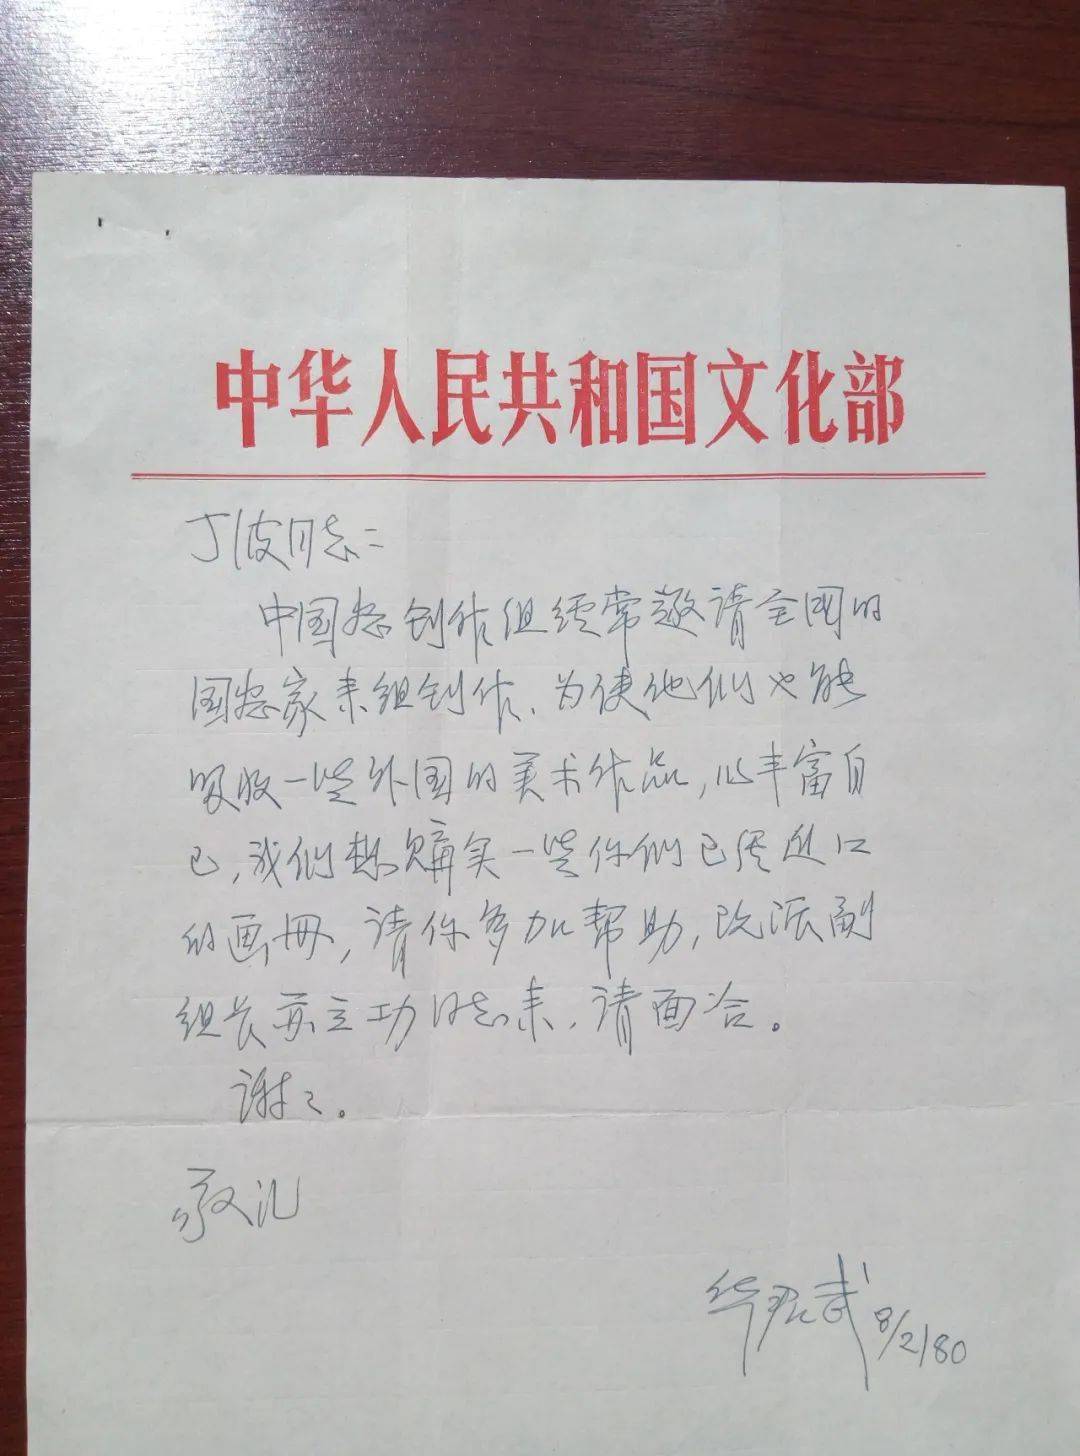 中华人民共和国文化部
丁波同志：
中国画创作组经常邀请全国的
国画家来组创作、为使他们也能
吸收一些外国的美术作品，以丰富自
己，我们想购买一些你们已经进口
的画册，请你多加帮助，改派副
组长苏立功同志来，请面洽。
谢々。
敬礼
华君武 8/2/80